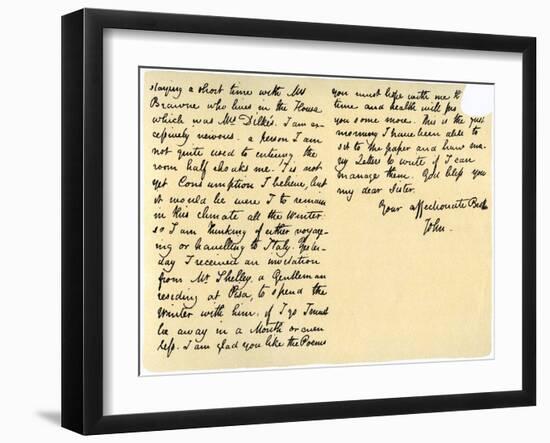 staying a short time with Mrs
Brawne who lives in the House
which was Mr Dilke's. I am ex-
cessively nervous. a person I am
not quite used to entering the
room half choaks me. It is not
yet Consumption I believe, but
it would be were I to remain
in this climate all the Winter:
so I am thinking of either voyag-
ing or travelling to Italy. Yester-
day I received an invitation
from Mr Shelley, a Gentleman
residing at Pisa, to spend the
Winter with him. if I go I must
be away in a Month or even
less. I am glad you like the Poems
you must hope with me
time and health will
you some more. This is the
morning I have been able to
sit to the paper and have ma-
ny Letters to write if I can
manage them. God bless you
my dear Sister.
Your affectionate
John.